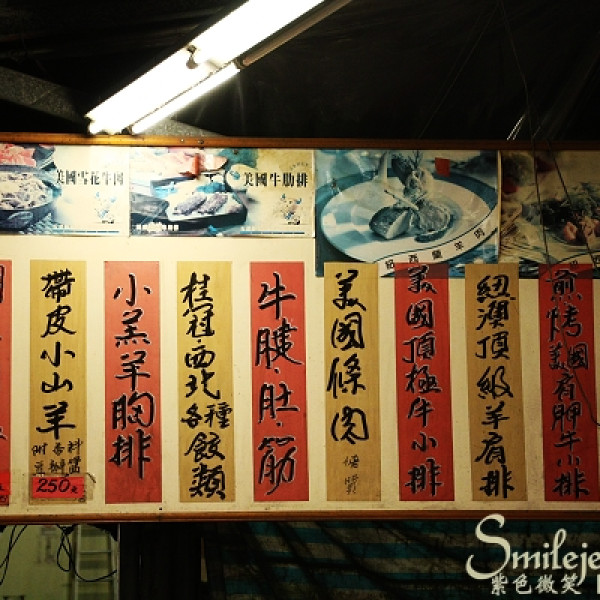 美國雪花牛肉
美國牛肋排
紐西蘭羊肉
帶皮小山羊
附香料
豆瓣醬
250元
小羔羊胸排
桂冠·西北各種餃類
牛腱·肚·筋
美國條肉
美國頂極牛小排
紐澳頂級羊肩排
煎烤美國肩胛牛小排
Smileje
紫色微笑